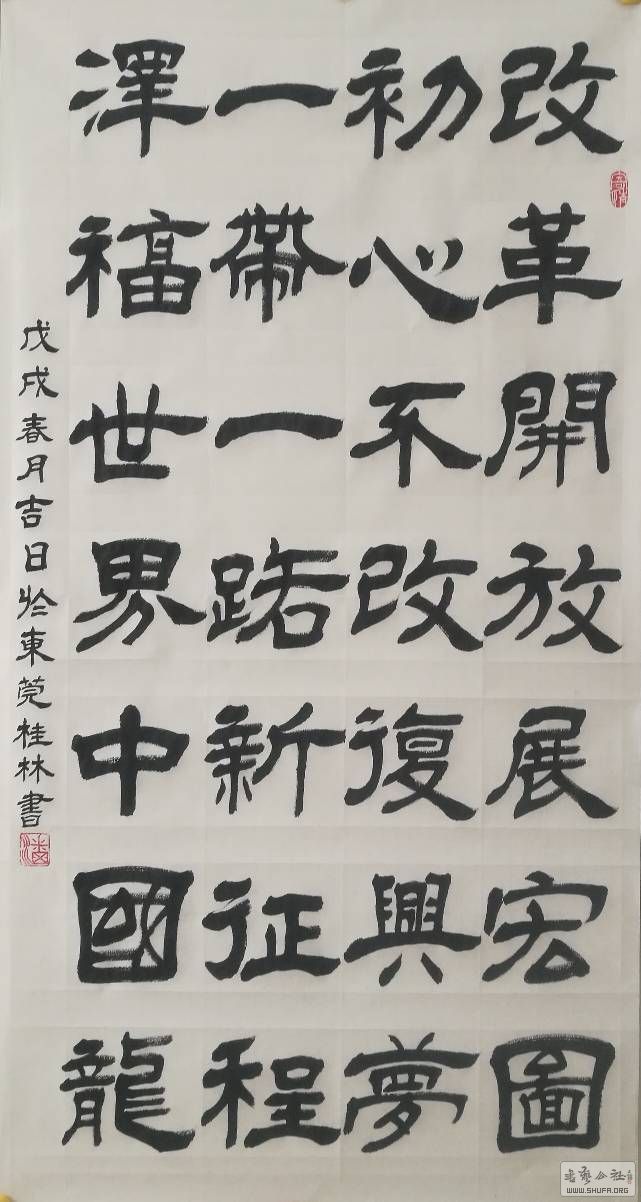 改革開放展宏圖
初心不改復興夢
一帶一路新征程
澤福世界中國龍
戊戌春月吉日於東莞桂林書
潘
WWW.SHUFA.ORG